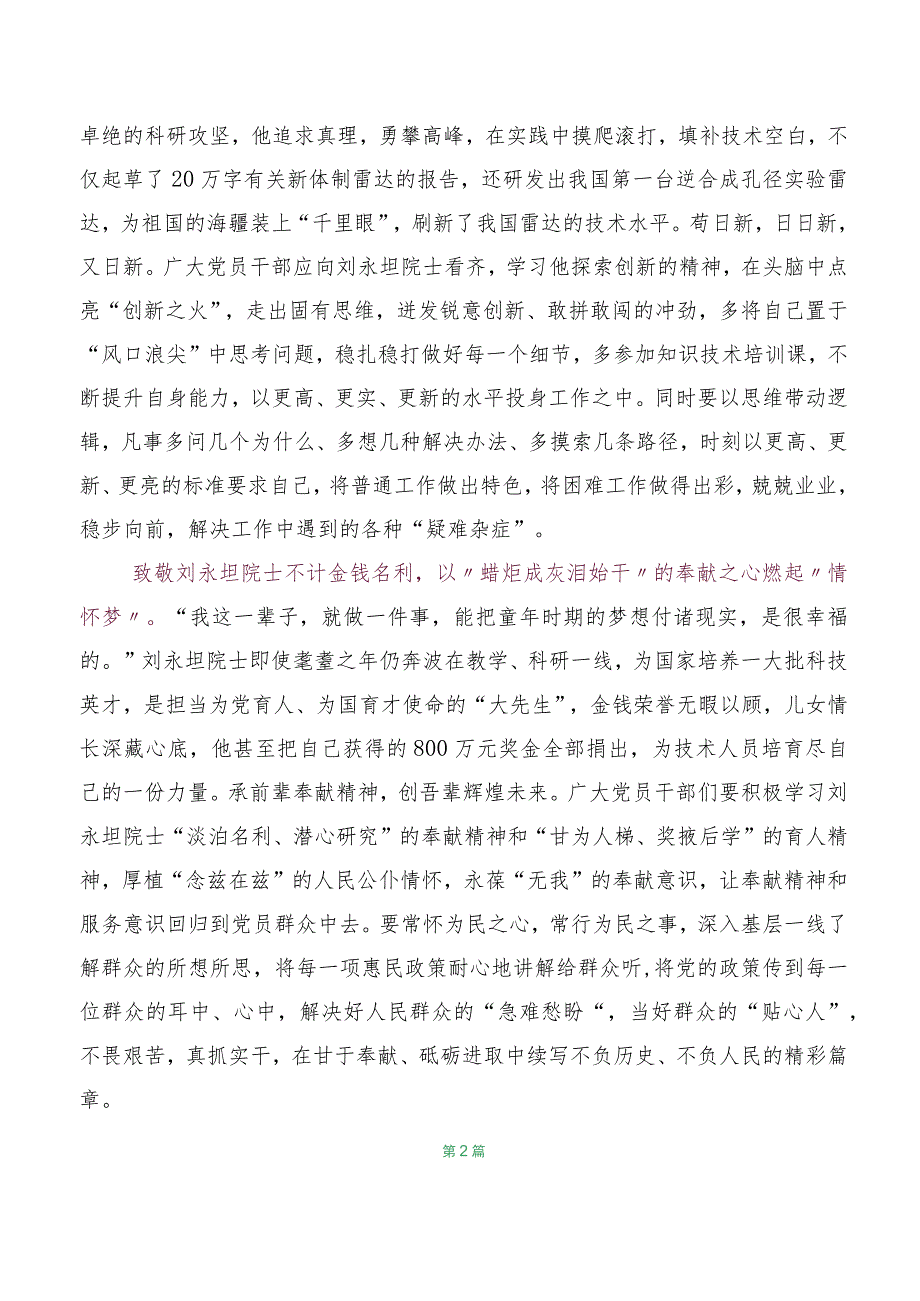 卓绝的科研攻坚，他追求真理，勇攀高峰，在实践中摸爬滚打，填补技术空白，不
仅起草了 20 万字有关新体制雷达的报告，还研发出我国第一台逆合成孔径实验雷
达，为祖国的海疆装上“千里眼”，刷新了我国雷达的技术水平。苟日新，日日新，
又日新。广大党员干部应向刘永坦院士看齐，学习他探索创新的精神，在头脑中点
亮“创新之火”，走出固有思维，迸发锐意创新、敢拼敢闯的冲劲，多将自己置于
“风口浪尖”中思考问题，稳扎稳打做好每一个细节，多参加知识技术培训课，不
断提升自身能力，以更高、更实、更新的水平投身工作之中。同时要以思维带动逻
辑，凡事多问几个为什么、多想几种解决办法、多摸索几条路径，时刻以更高、更
新、更亮的标准要求自己，将普通工作做出特色，将困难工作做得出彩，兢兢业业，
稳步向前，解决工作中遇到的各种“疑难杂症”。
致敬刘永坦院士不计金钱名利，以〃蜡炬成灰泪始干〃的奉献之心燃起〃情
怀梦〃。“我这一辈子，就做一件事，能把童年时期的梦想付诸现实，是很幸福
的。”刘永坦院士即使耄耋之年仍奔波在教学、科研一线，为国家培养一大批科技
英才，是担当为党育人、为国育才使命的“大先生”，金钱荣誉无暇以顾，儿女情
长深藏心底，他甚至把自己获得的 800 万元奖金全部捐出，为技术人员培育尽自
己的一份力量。承前辈奉献精神，创吾辈辉煌未来。广大党员干部们要积极学习刘
永坦院士“淡泊名利、潜心研究”的奉献精神和“甘为人梯、奖掖后学”的育人精
神，厚植“念兹在兹”的人民公仆情怀，永葆“无我”的奉献意识，让奉献精神和
服务意识回归到党员群众中去。要常怀为民之心，常行为民之事，深入基层一线了
解群众的所想所思，将每一项惠民政策耐心地讲解给群众听,将党的政策传到每一
位群众的耳中、心中，解决好人民群众的“急难愁盼“，当好群众的“贴心人”，
不畏艰苦，真抓实干，在甘于奉献、砥砺进取中续写不负历史、不负人民的精彩篇
章。
第 2 篇